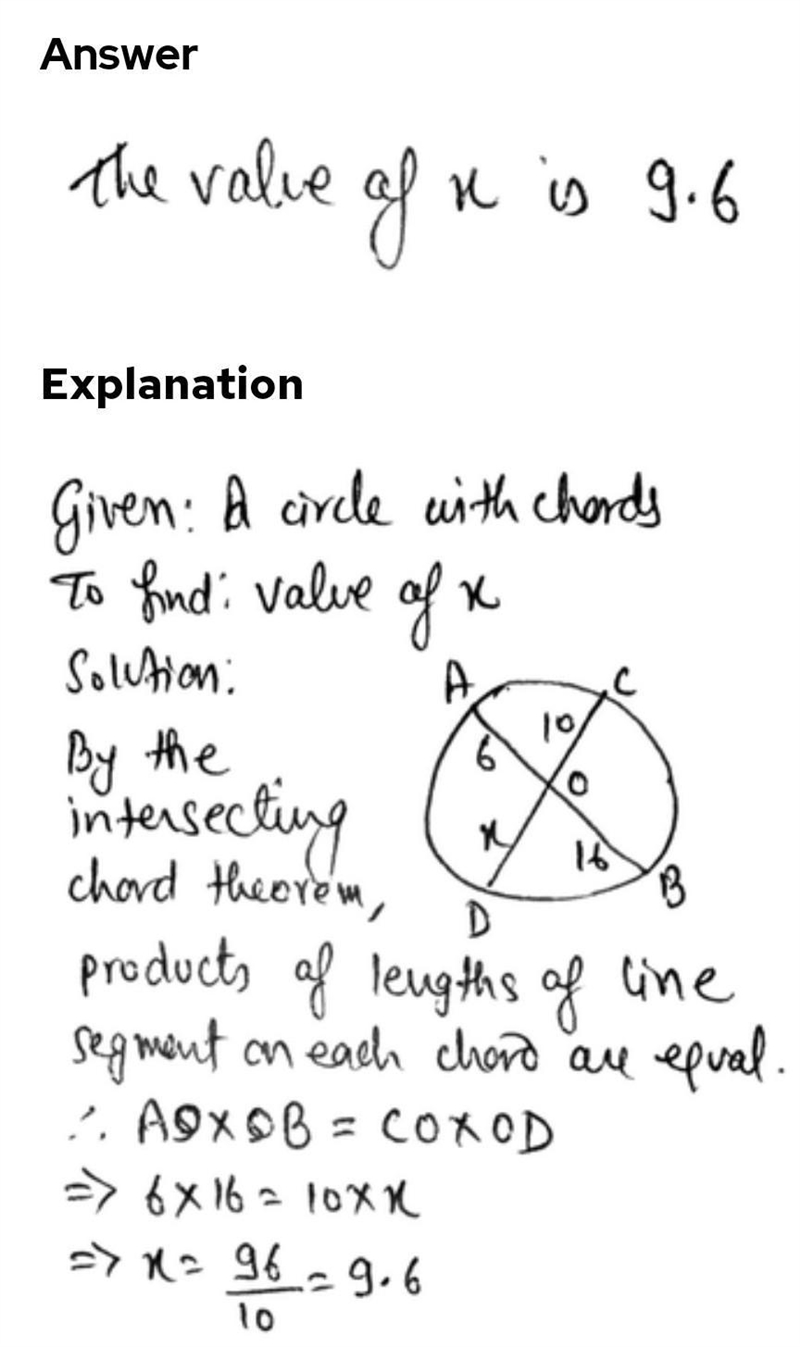 Answer
the value of x is 9.6
Explanation
Given: A circle with chords
To find: value of x
Solution:
A
C
By the
10
6
O
intersecting
x
16
chord theorem,
B
D
products of lengths of line
segment on each chord are equal.
∴ AO×OB = CO×OD
=> 6×16 = 10×x
=> x = 96/10 = 9.6